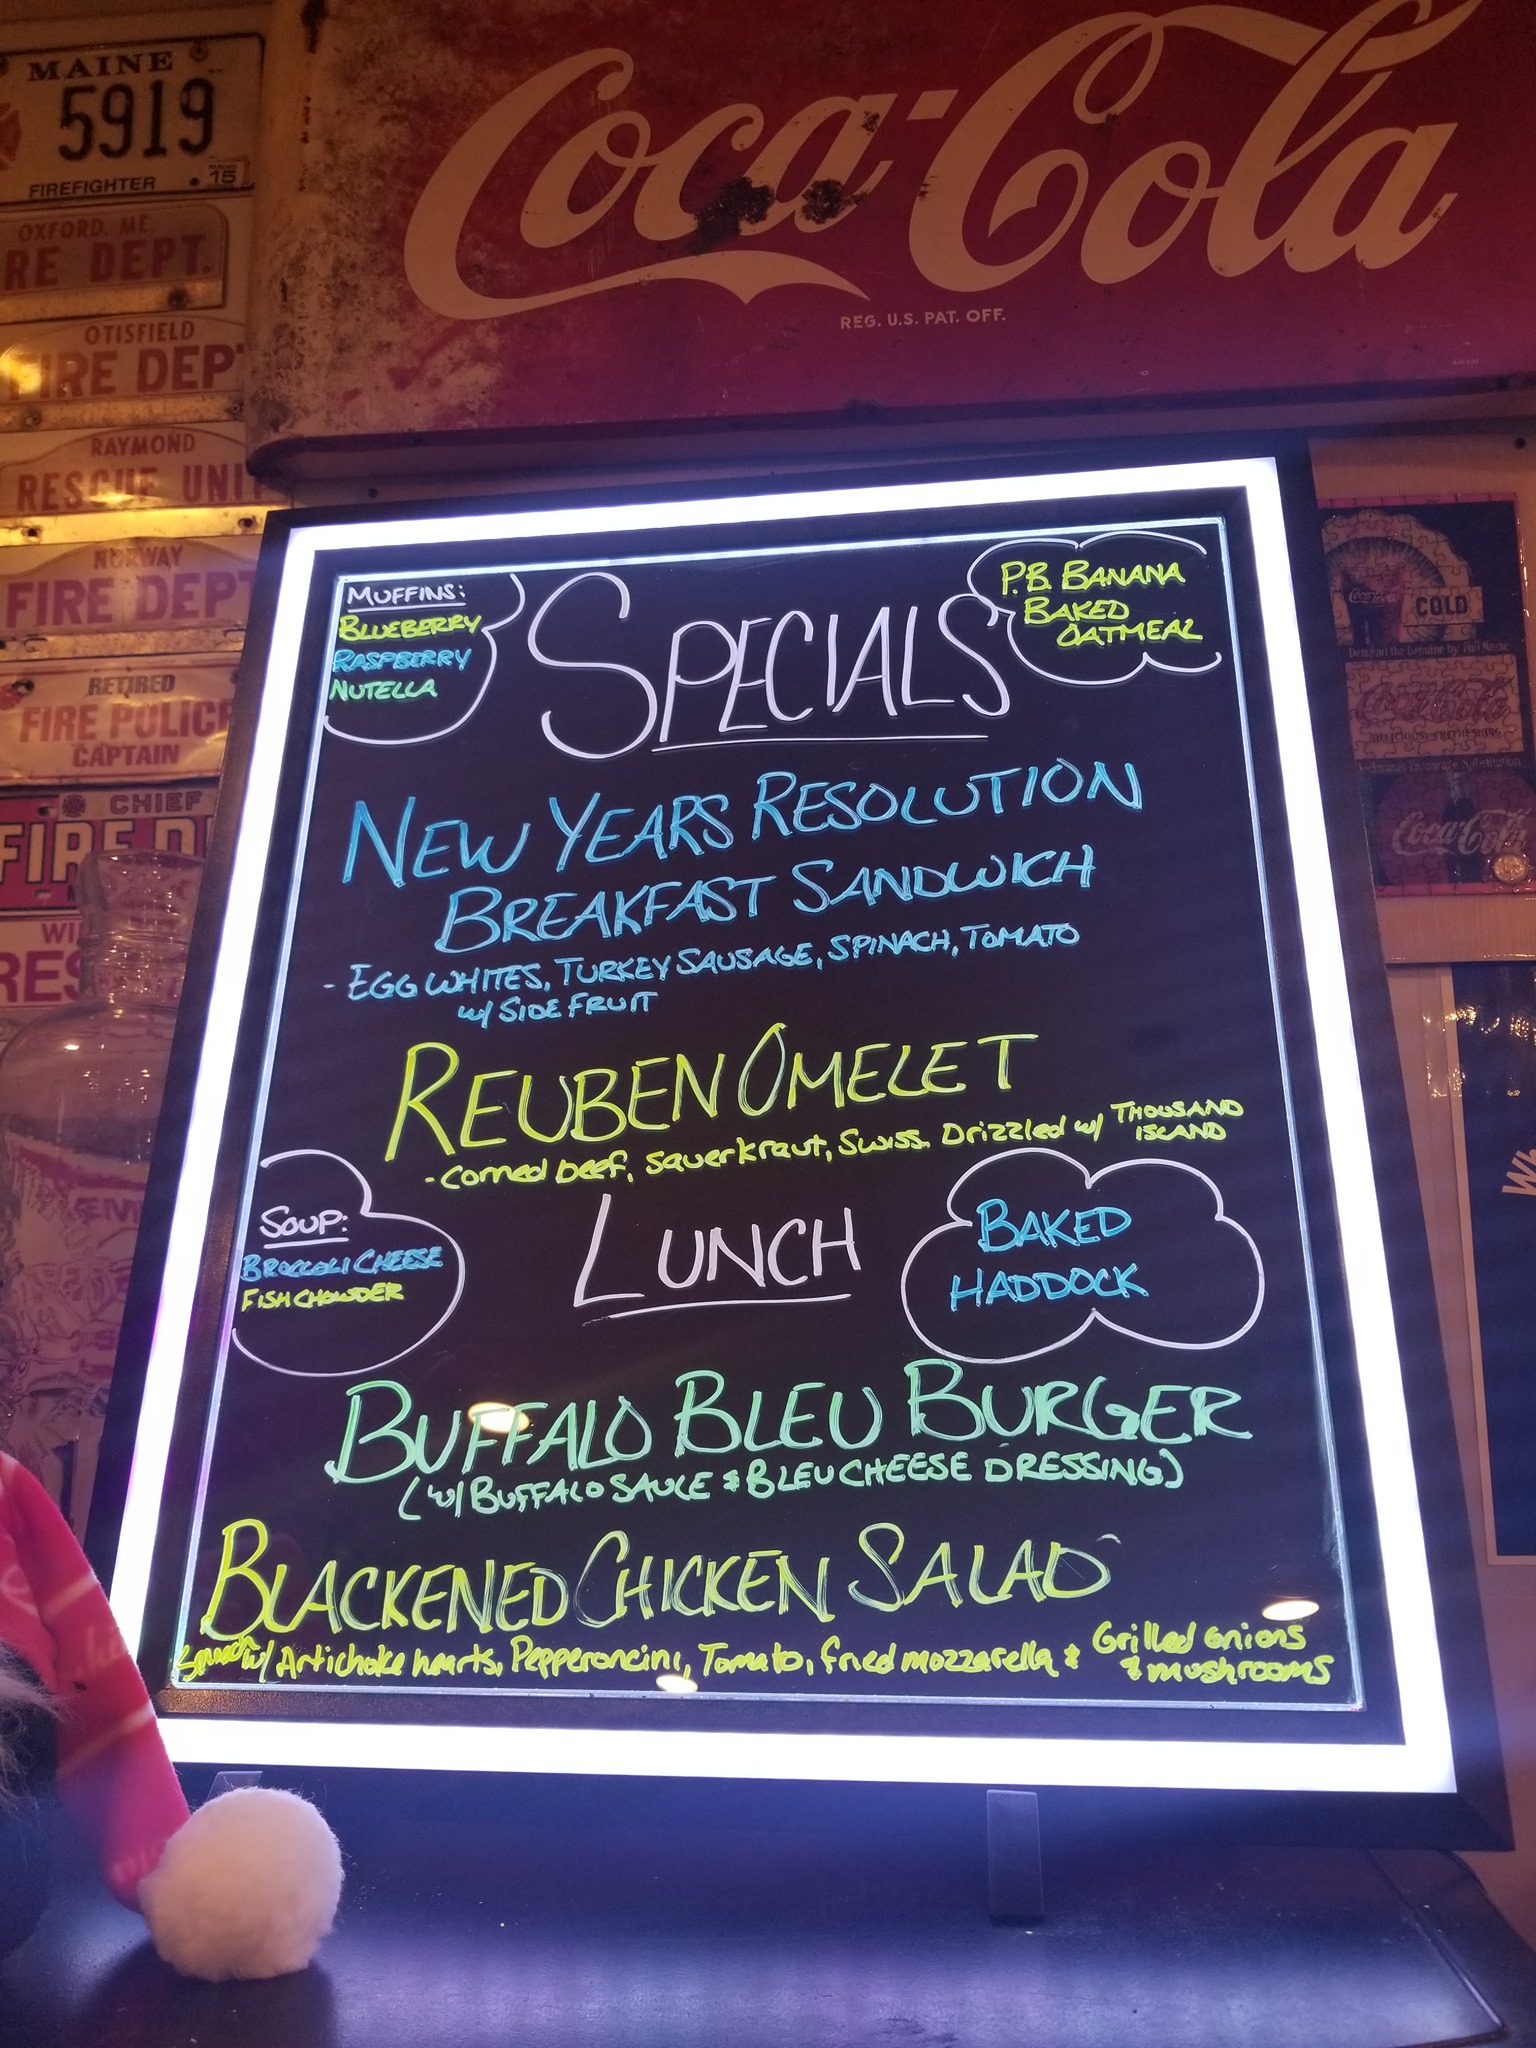 MAINE
5919
FIREFIGHTER
15
OXFORD, ME.
RE DEPT.
OTISFIELD
FIRE DEP
RAYMOND
RESCUE UNIT
NORWAY
FIRE DEPT
RETIRED
FIRE POLICE
CAPTAIN
CHIEF
FIRE D
WI
RES
Coca-Cola
REG. U.S. PAT. OFF.
COLD
Coca-Cola
MUFFINS:
BLUEBERRY
RASPBERRY
NUTELLA
SPECIALS
P.B. BANANA
BAKED
OATMEAL
NEW YEARS RESOLUTION
BREAKFAST SANDWICH
- EGG WHITES, TURKEY SAUSAGE, SPINACH, TOMATO
w/ SIDE FRUIT
REUBEN OMELET
- Corned beef, sauerkraut, Swiss. Drizzled w/ THOUSAND
ISLAND
SOUP:
BROCCOLI CHEESE
FISH CHOWDER
LUNCH
BAKED
HADDOCK
BUFFALO BLEU BURGER
(w/ BUFFALO SAUCE & BLEU CHEESE DRESSING)
BLACKENED CHICKEN SALAD
Spinach w/ Artichoke hearts, Pepperoncini, Tomato, fried mozzarella & Grilled onions
& mushrooms